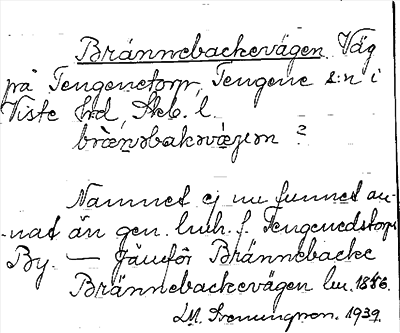 Brännebackevägen Väg
på Tengenetorp, Tengene s:n i
Viste hrd, Skb. l.
Namnet ej nu funnet an-
-nat än gen. lmh. f. Tengenedstorps
By. — Jämför Brännebacke
Brännebackevägen lm. 1886.
1939.